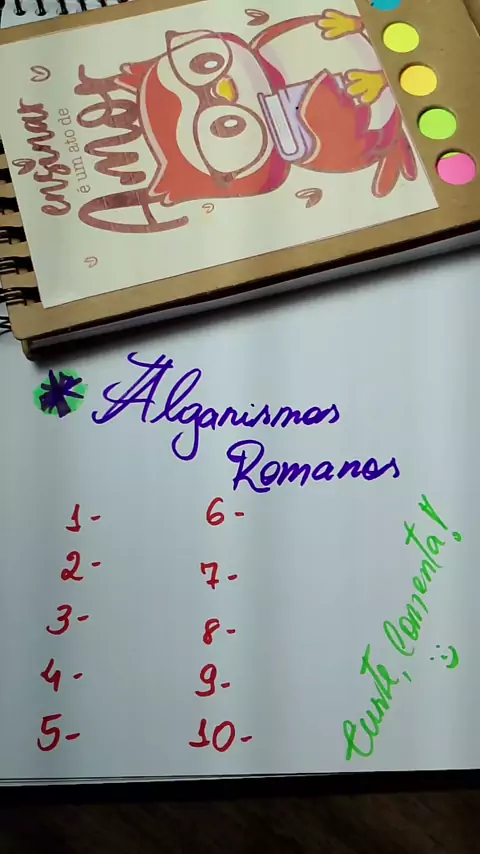 ensinar
é um ato de
Amor
* Algarismos
Romanos
1-
2-
3-
4-
5-
6-
7-
8-
9-
10-
Curte, Comenta!